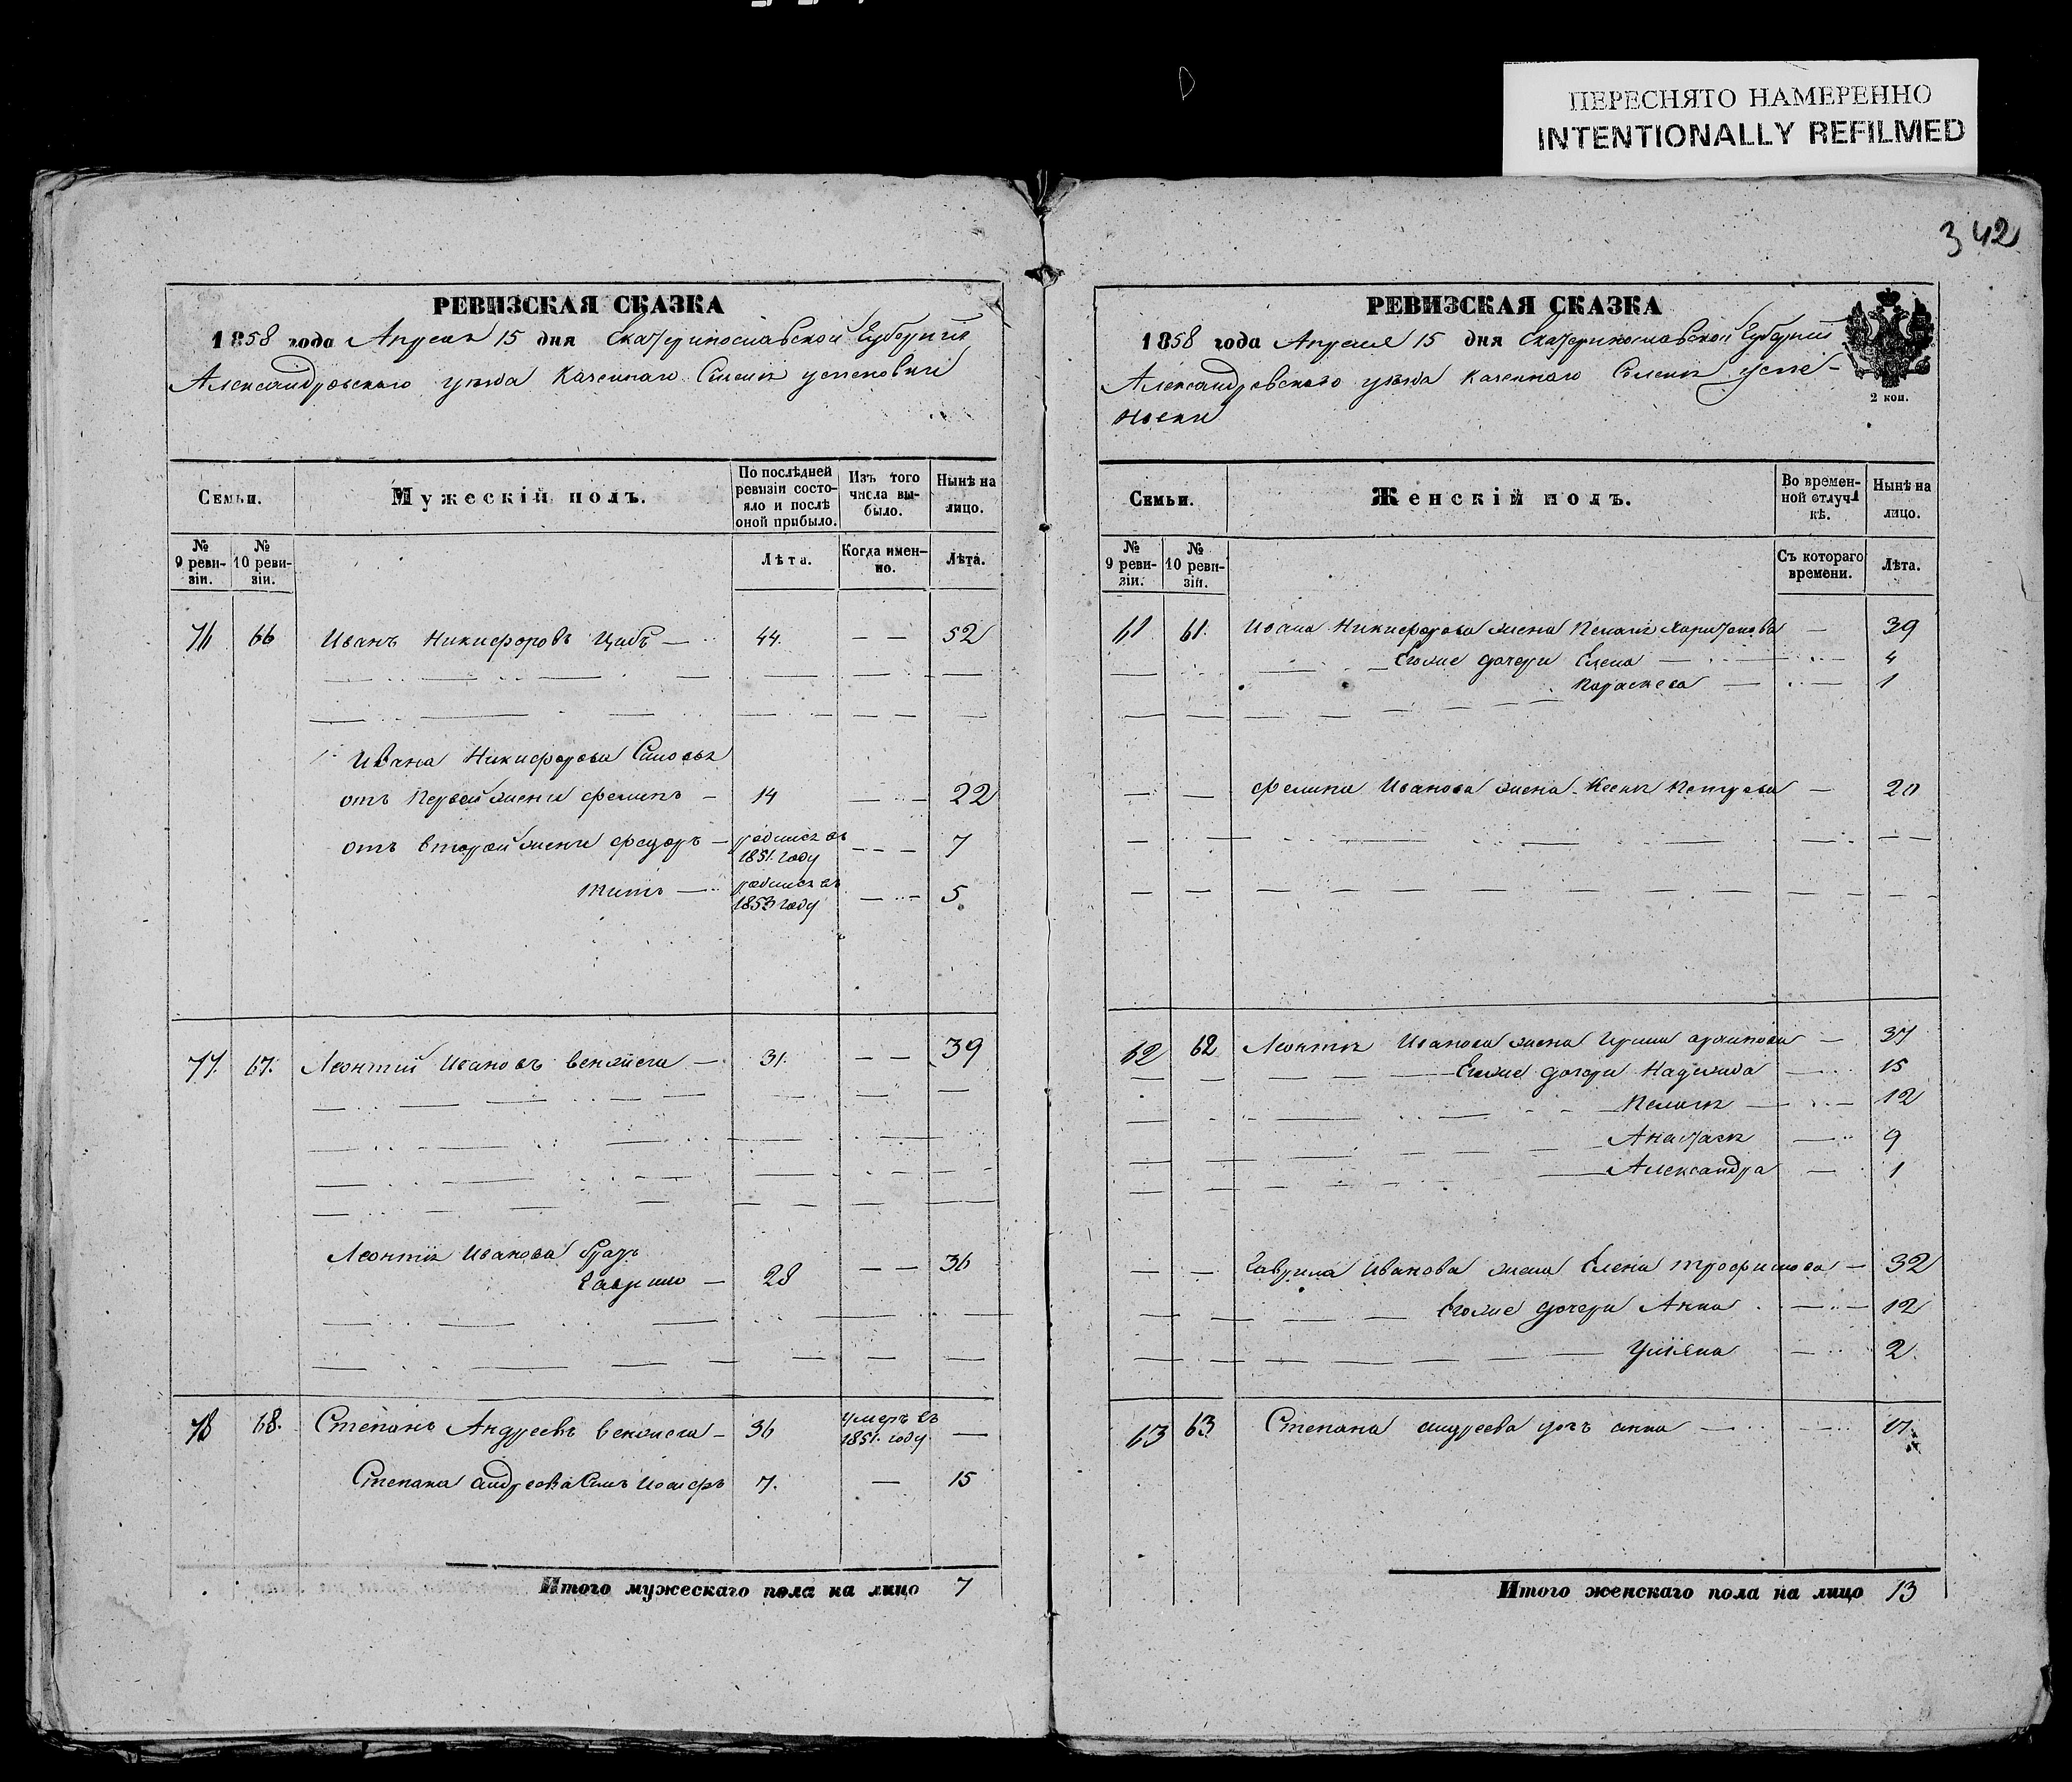 ПЕРЕСНЯТО НАМЕРЕННО
INTENTIONALLY REFILMED
342
РЕВИЗСКАЯ СКАЗКА
1858 года Апреля 15 дня Екатеринославской Губернии
Александровского уѣзда Казенного Селенія
Семьи.
Мужескій полъ.
По послѣдней ревизіи состояло и послѣ оной прибыло.
Изъ того числа выбыло.
Нынѣ на лицо.
№ 9 ревизіи.
№ 10 ревизіи.
Лѣта.
Когда именно.
Лѣта.
76 66 Иванъ Никифоровъ Цибъ — 44. — — 52
Ивана Никифорова Сыновья
отъ Первой жены Филипъ — 14 — — 22
отъ второй жены Федоръ — родился въ 1851. году — — 7
Титъ — родился въ 1853 году — — 5.
77. 67. Леонтій Ивановъ — 31. — — 39
Леонтія Иванова братъ
Гаврило — 28 — — 36
78 68. Степанъ Андреевъ — 36 умеръ въ 1851. году —
Степана Андреева Сынъ Иосифъ 7. — 15
Итого мужескаго пола на лицо 7
РЕВИЗСКАЯ СКАЗКА
1858 года Апреля 15 дня Екатеринославской Губерніи
Александровского уѣзда Казенного Селенія
2 коп.
Семьи.
Женскій полъ.
Во временной отлучкѣ.
Нынѣ на лицо.
№ 9 ревизіи.
№ 10 ревизіи.
Съ котораго времени.
Лѣта.
61 61. Ивана Никифорова жена Пелагія Харитонова — 39
Егоже дочери Елена — 4
Параскева — 1
Филипа Иванова жена Ксенія Петрова — 20
62 62 Леонтія Иванова жена Ирина — 37
Егоже дочери Надежда — 15
Пелагія — 12
Анастасія — 9
Александра — 1
Гаврила Иванова жена Елена Трофимова — 32
Егоже дочери Анна — 12
Уліяна — 2.
63 63 Степана андреева дочь анна — 17.
Итого женскаго пола на лицо 13